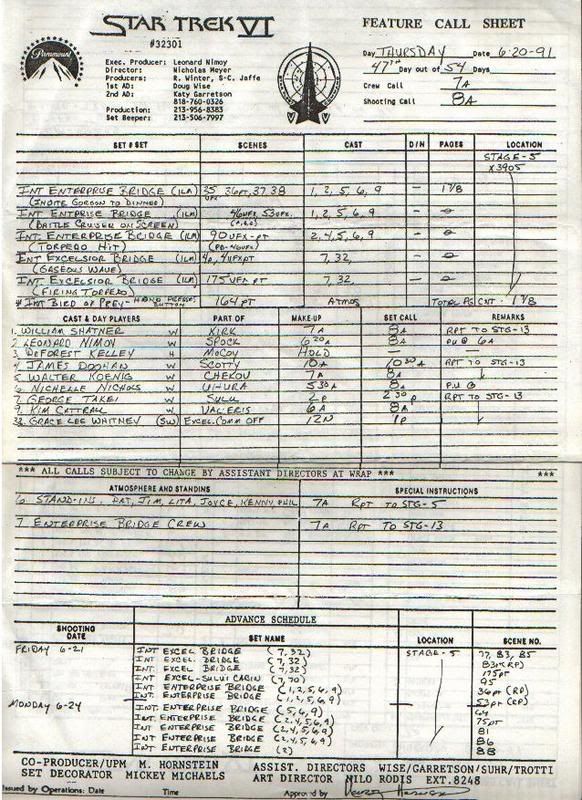 Paramount
STAR TREK VI
#32301
FEATURE CALL SHEET
Day THURSDAY Date 6-20-91
47TH Day out of 54 Days
Crew Call 7A
Shooting Call 8A
Exec. Producer: Leonard Nimoy
Director: Nicholas Meyer
Producers: R. Winter, S-C. Jaffe
1st AD: Doug Wise
2nd AD: Katy Garretson
818-760-0326
Production: 213-956-8383
Set Beeper: 213-506-7997
SET # SET SCENES CAST D/N PAGES LOCATION
STAGE-5
X3905
INT ENTERPRISE BRIDGE (ILM) 35 36PT, 37, 38 1, 2, 5, 6, 9 — 1 1/8
(INVITE GORKON TO DINNER) VFX
INT ENTPRISE BRIDGE (ILM) 46UFX, 53UFX, 1, 2, 5, 6, 9 — 0
(BATTLE CRUISER ON SCREEN)
INT. ENTERPRISE BRIDGE (ILM) 90UFX-PT 2, 4, 5, 6, 9 — 0
(TORPEDO HIT)
INT EXCELSIOR BRIDGE (ILM) 4P, 4UFXPT 7, 32, — 0
(GASEOUS WAVE)
INT EXCELSIOR BRIDGE (ILM) 175UFX PT 7, 32, — 0
(FIRING TORPEDO)
# INT BIRD OF PREY - HAND PRESSES BUTTON 164PT ATMOS TOTAL PG CNT. 1 1/8
CAST & DAY PLAYERS PART OF MAKE-UP SET CALL REMARKS
1. WILLIAM SHATNER W KIRK 7A 8A RPT TO STG-13
2 LEONARD NIMOY W SPOCK 6 30A 8A PU @ 6A
3. DEFOREST KELLEY H MCCOY HOLD — —
4 JAMES DOOHAN W SCOTTY 10A 10 30A RPT TO STG-13
5 WALTER KOENIG W CHEKOV 7A 8A
6 NICHELLE NICHOLS W UHURA 5 30A 8A P.U @
7 GEORGE TAKEI W SULU 2P 2 30P RPT TO STG-13
9 KIM CATTRALL W VALERIS 6A 8A
32. GRACE LEE WHITNEY (SW) EXCEL. COMM OFF 12N 1P
*** ALL CALLS SUBJECT TO CHANGE BY ASSISTANT DIRECTORS AT WRAP *** ***
ATMOSPHERE AND STANDINS SPECIAL INSTRUCTIONS
6 STAND-INS. PAT, JIM, LITA, JOYCE, KENNY, PHIL 7A RPT TO STG-5
7 ENTERPRISE BRIDGE CREW 7A RPT TO STG-13
ADVANCE SCHEDULE
SHOOTING DATE SET NAME LOCATION SCENE NO.
FRIDAY 6-21 INT EXCEL BRIDGE (7, 32) STAGE-5 77, 83, 85
INT EXCEL. BRIDGE (7, 32) 83PT(RP)
INT EXCEL BRIDGE (7, 32) 175PT
INT EXCEL-SULU'S CABIN (7, 70) 95
INT ENTERPRISE BRIDGE (1, 2, 5, 6, 9) 36PT (RP)
INT. ENTERPRISE BRIDGE (1, 2, 5, 6, 9) 53PT (RP)
MONDAY 6-24 INT ENTERPRISE BRIDGE (5, 6, 9) 64
INT ENTERPRISE BRIDGE (2, 4, 5, 6, 9) 75PT
INT ENTERPRISE BRIDGE (2, 4, 5, 6, 9) 81
INT ENTERPRISE BRIDGE (2, 4, 5, 6, 9) 86
INT ENTERPRISE BRIDGE (2) 88
CO-PRODUCER/UPM M. HORNSTEIN ASSIST. DIRECTORS WISE/GARRETSON/SUHR/TROTTI
SET DECORATOR MICKEY MICHAELS ART DIRECTOR NILO RODIS EXT.8248
Issued by Operations: Date Time Approved by